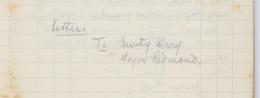 Letters
To Aunty Mary
Major Redmond.